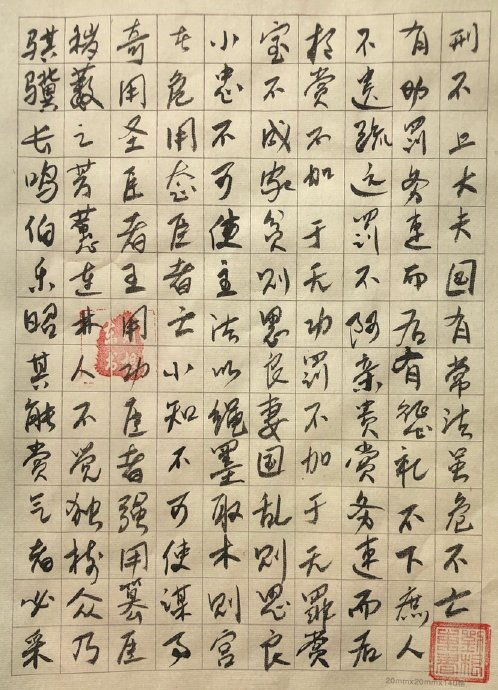 骐骥长鸣伯乐昭其能赏气者必采
秽薮之芳蕙连林人不觉独树众乃
奇用圣臣者王用功臣者强用篡臣
者危用态臣者亡小知不可使谋事
小忠不可使主法以绳墨取木则宫
室不成家贫则思良妻国乱则思良
相赏不加于无功罚不加于无罪赏
不遗疏远罚不阿亲贵赏务速而后
有功罚务速而后有惩礼不下庶人
刑不上大夫国有常法虽危不亡
20mmx20mmx140格